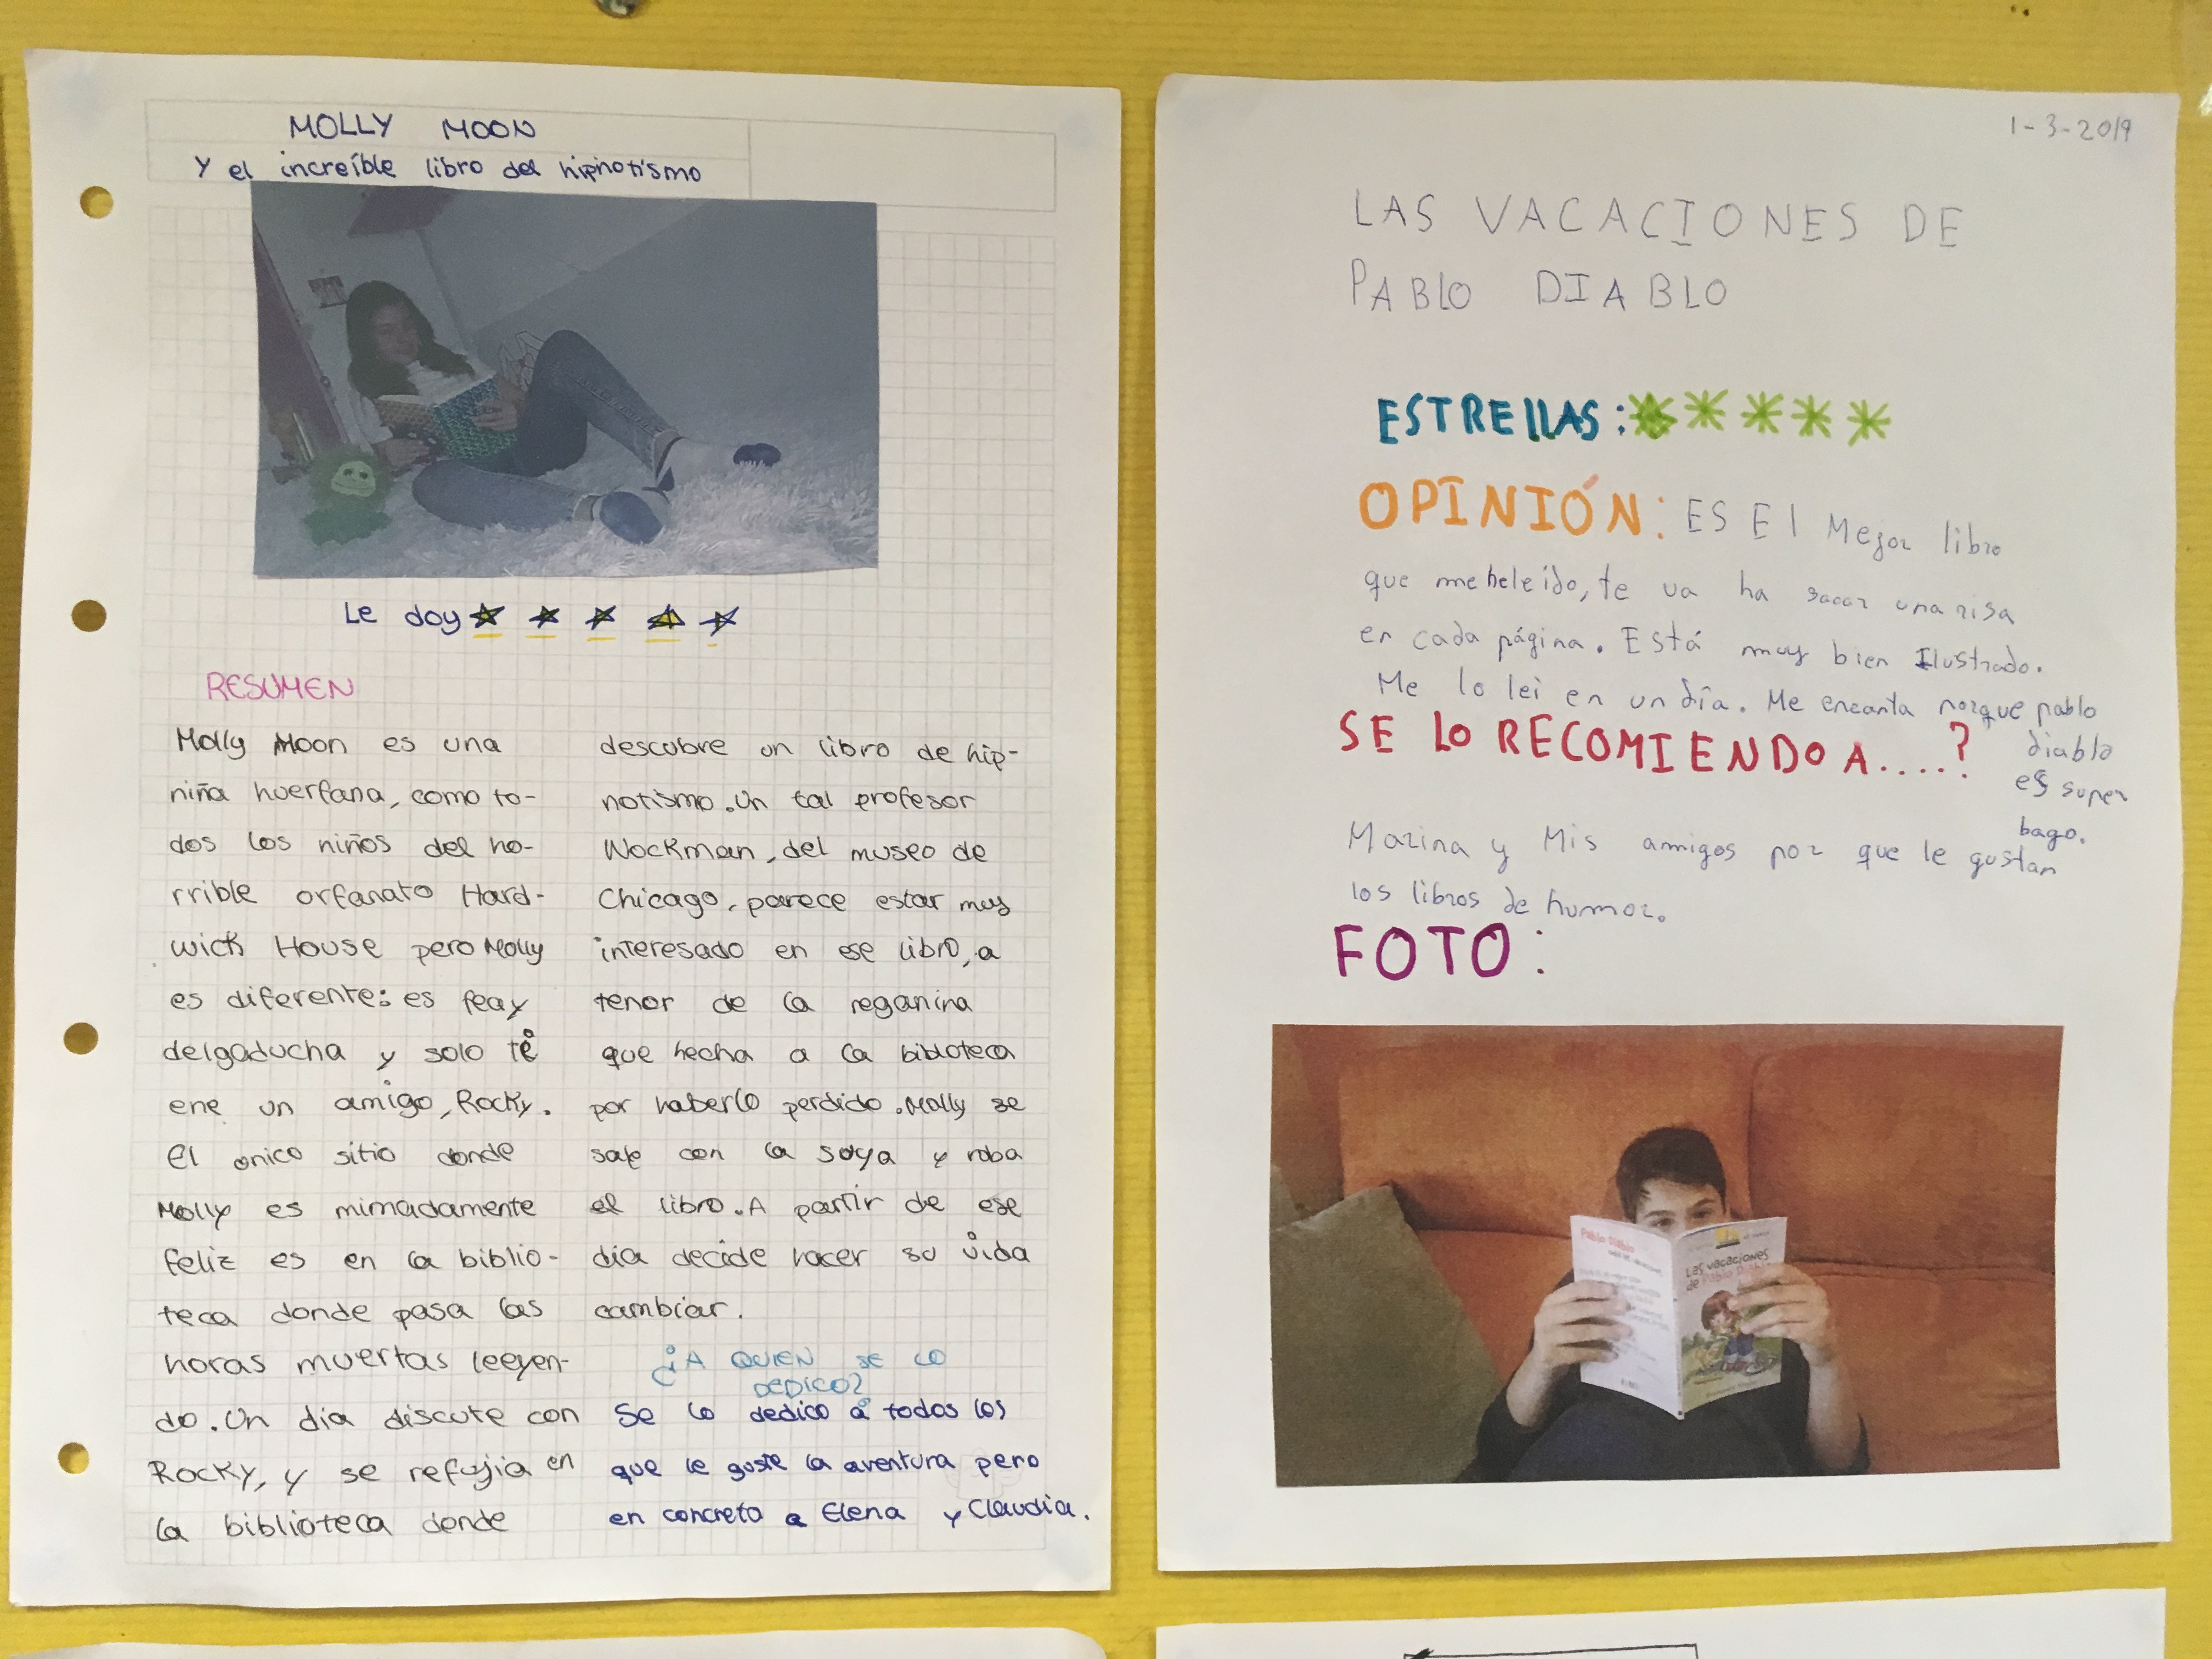 MOLLY MOON
Y el increíble libro del hipnotismo
Le doy
RESUMEN
Molly Moon es una
niña huerfana, como to-
dos los niños del ho-
rrible orfanato Hard-
wick House pero Molly
es diferente: es fea y
delgaducha y solo ti
ene un amigo, Rocky.
El unico sitio donde
Molly es mimadamente
feliz es en la biblio-
teca donde pasa las
horas muertas leeyen-
do. Un dia discute con
Rocky, y se refujia en
la biblioteca donde
descubre un libro de hip-
notismo. Un tal profesor
Wockman, del museo de
Chicago, parece estar muy
interesado en ese libro, a
tenor de la reganina
que hecha a la bibloteca
por haberlo perdido. Molly se
sale con la suya y roba
el libro. A partir de ese
dia decide hacer su vida
cambiar.
¿A QUIEN SE LO
DEDICO?
Se lo dedico a todos los
que le guste la aventura pero
en concreto a Elena y Claudia.
1-3-2019
LAS VACACIONES DE
PABLO DIABLO
ESTRELLAS:
OPINIÓN: ES El Mejor libro
que me he leído, te va ha sacar una risa
en cada página. Está muy bien Ilustrado.
Me lo lei en un día. Me encanta porque pablo
diablo
es super
bago.
SE LO RECOMIENDO A....?
Marina y Mis amigos por que le gustan
los libros de humor.
FOTO:
Pablo Diablo
Las vacaciones
de Pablo Diablo